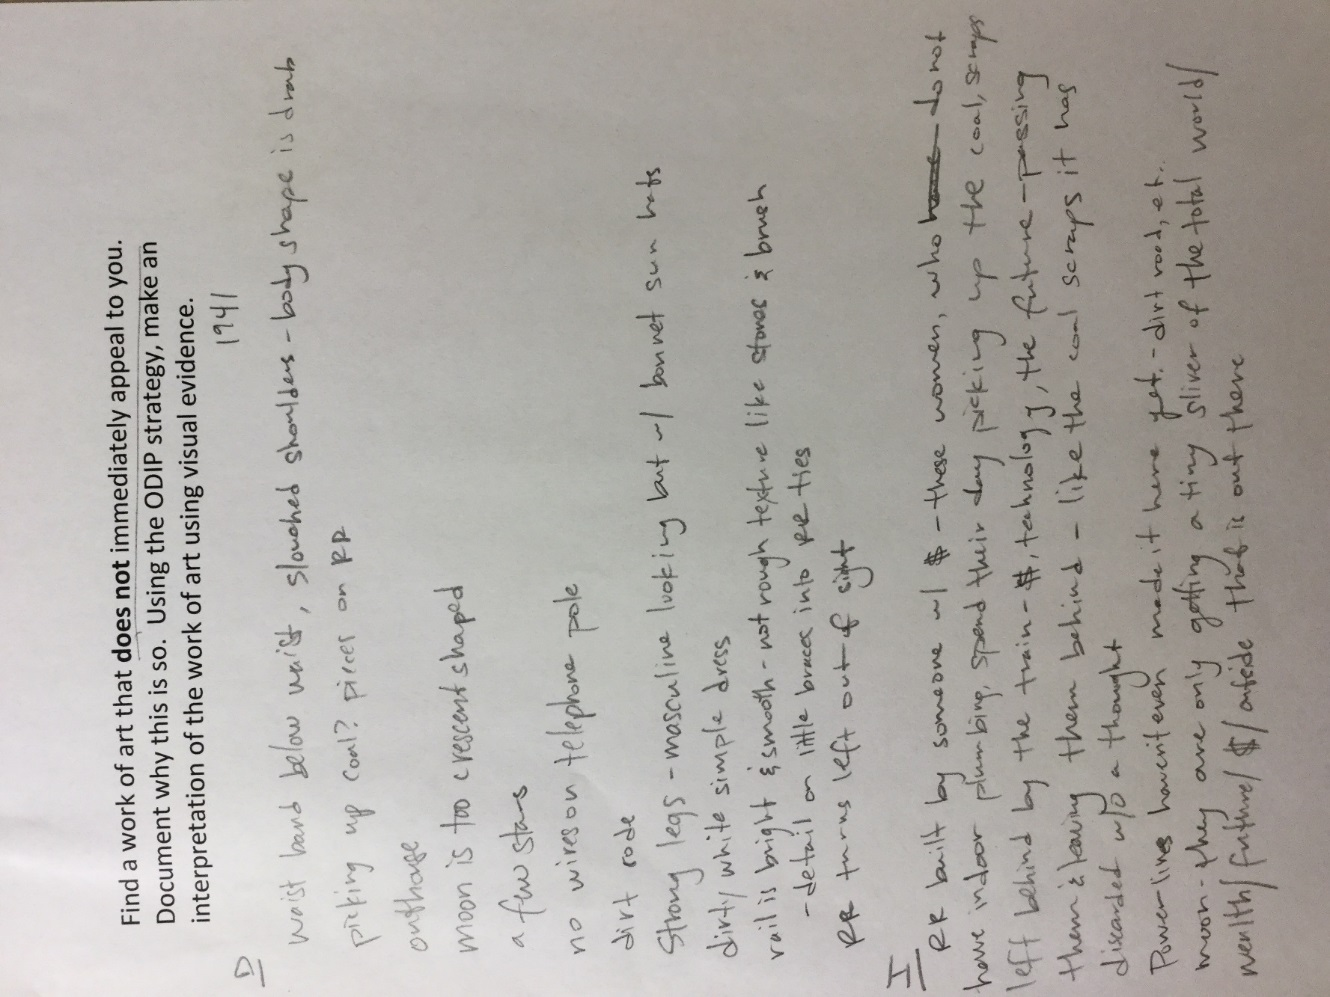 Find a work of art that does not immediately appeal to you.
Document why this is so. Using the ODIP strategy, make an
interpretation of the work of art using visual evidence.
1941
D
waist band below waist, slouched shoulders - body shape is drab
picking up coal? pieces on RR
outhouse
moon is too crescent shaped
a few stars
no wires on telephone pole
dirt rode
Strong legs - masculine looking but w/ bonnet sun hats
dirty white simple dress
rail is bright & smooth - not rough texture like stones & brush
- detail on little braces into RR ties
RR turns left out of sight
I
RR built by someone w/ $ - these women, who have do not
have indoor plumbing, spend their day picking up the coal, scraps
left behind by the train - $, technology, the future - passing
them & leaving them behind - like the coal scraps it has
discarded w/o a thought
Power lines havent even made it here yet. - dirt road, et.
moon - they are only getting a tiny sliver of the total world/
wealth/future/$/outside that is out there